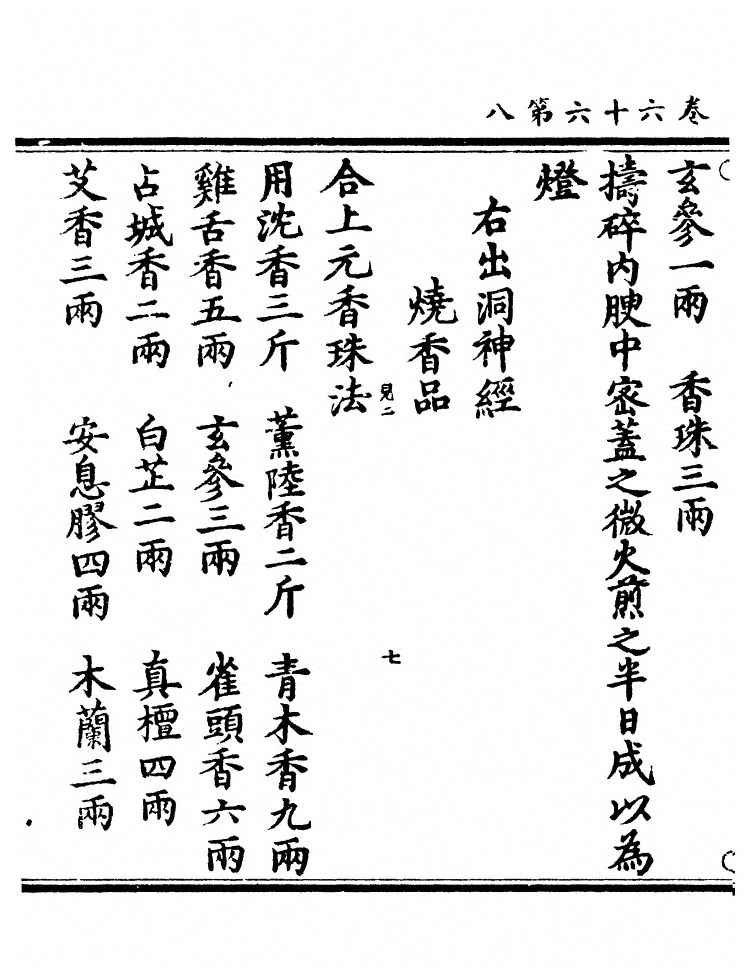 卷六十六第八
玄參一兩　香珠三兩
擣碎内腴中密蓋之微火煎之半日成以為
燈
右出洞神經
燒香品
見二　七
合上元香珠法
用沈香三斤　薰陸香二斤　青木香九兩
雞舌香五兩　玄參三兩　雀頭香六兩
占城香二兩　白芷二兩　真檀四兩
艾香三兩　安息膠四兩　木蘭三兩